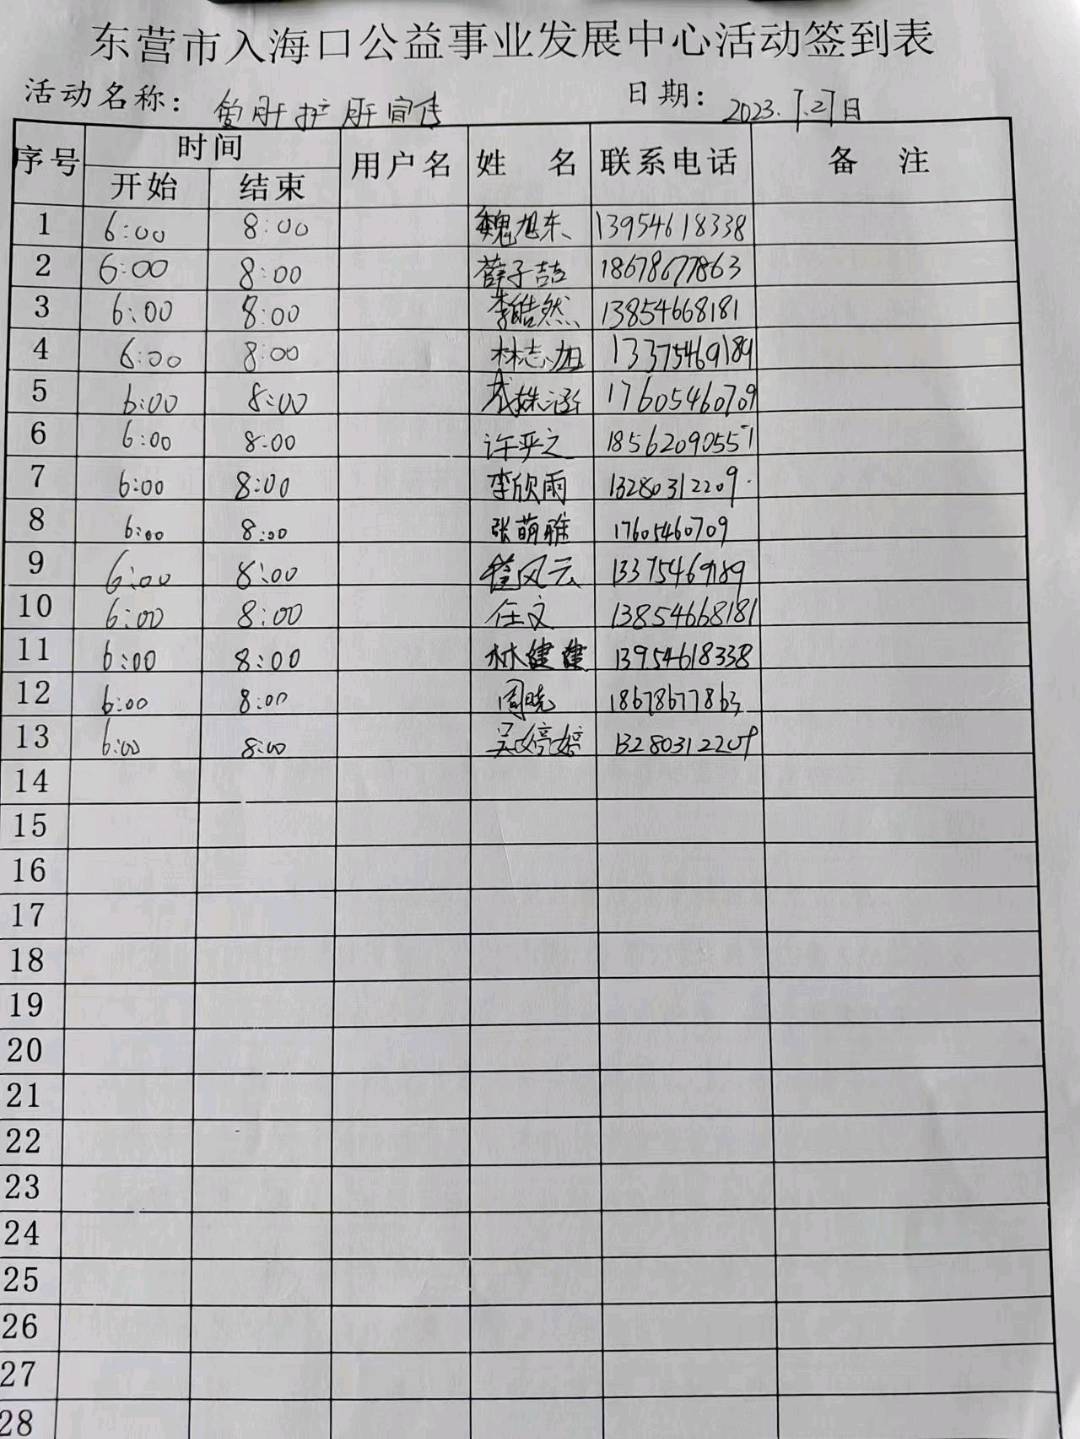 东营市入海口公益事业发展中心活动签到表
活动名称： 爱肝护肝宣传 日期： 2023.7.27日
序号 时间 用户名 姓 名 联系电话 备 注
开始 结束
1 6:00 8:00 魏旭东 13954618338
2 6:00 8:00 薛子喆 18678677863
3 6:00 8:00 李皓然 13854668181
4 6:00 8:00 林志旭 13375469189
5 6:00 8:00 17605460709
6 6:00 8:00 18562090557
7 6:00 8:00 李欣雨 13280312209
8 6:00 8:00 张萌雅 17605460709
9 6:00 8:00 风云 13375469189
10 6:00 8:00 任文 13854668181
11 6:00 8:00 林建建 13954618338
12 6:00 8:00 周晓 18678677863
13 6:00 8:00 吴婷婷 13280312209
14
15
16
17
18
19
20
21
22
23
24
25
26
27
28